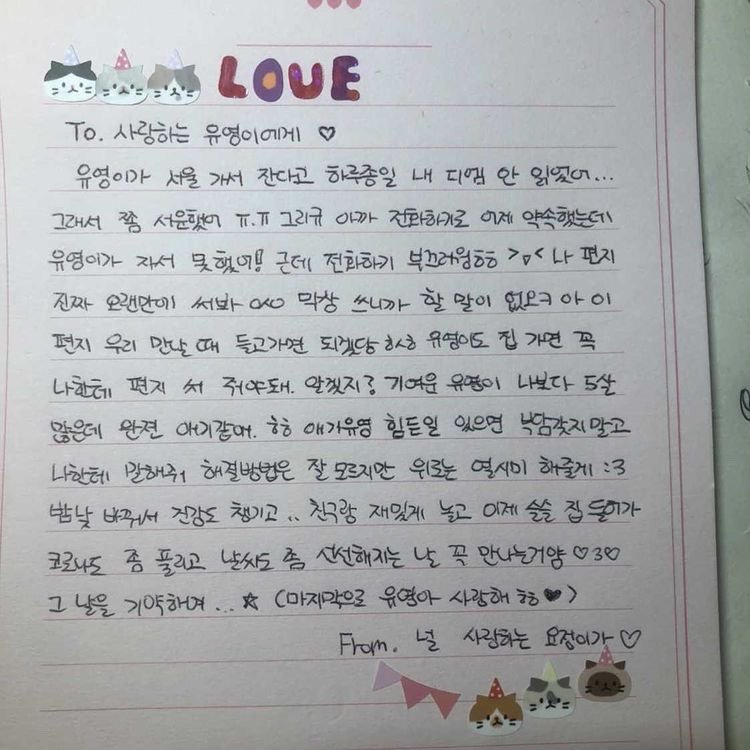 LOVE
To. 사랑하는 유영이에게 ♡
유영이가 서울 가서 잔다고 하루종일 내 디엠 안 읽었어...
그래서 쫌 서운했어 ㅠ.ㅠ 그리구 아까 전화하기로 어제 약속했는데
유영이가 자서 못했어! 근데 전화하기 부끄러웡ㅎㅎ >_< 나 편지
진짜 오랜만에 써봐 ㅇㅅㅇ 막상 쓰니까 할 말이 없으ㅋ 아 이
편지 우리 만날 때 들고가면 되겠당 ㅎㅅㅎ 유영이도 집 가면 꼭
나한테 편지 써 줘야돼. 알겠지? 기여운 유영이 나보다 5살
많은데 완전 애기같애. ㅎㅎ 애가유영 힘든일 있으면 낙담갖지말고
나한테 말해줘 해결방법은 잘 모르지만 위로는 열시미 해줄게 :3
밤낮 바꿔서 건강도 챙기고 .. 친구랑 재밌게 놀고 이제 슬슬 집 들어가
코로나도 좀 풀리고 날씨도 좀 선선해지는 날 꼭 만나는거양 ♡3♡
그 날을 기약하며... ☆ (마지막으로 유영아 사랑해 ㅎㅎ ♥)
From. 널 사랑하는 요정이가 ♡